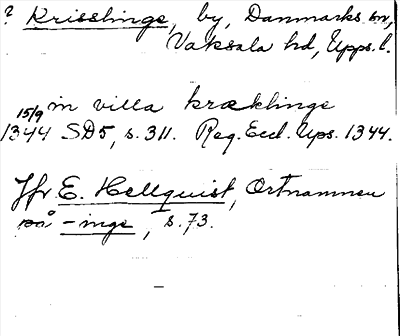 ? Krisslinge, by, Danmarks sn,
Vaksala hd, Upps. l.
15/9 in villa kræklinge
1344 SD5, s. 311. Reg. Eccl. Ups. 1344.
Jfr E. Hellquist, Ortnamnen
på -inge, s. 73.